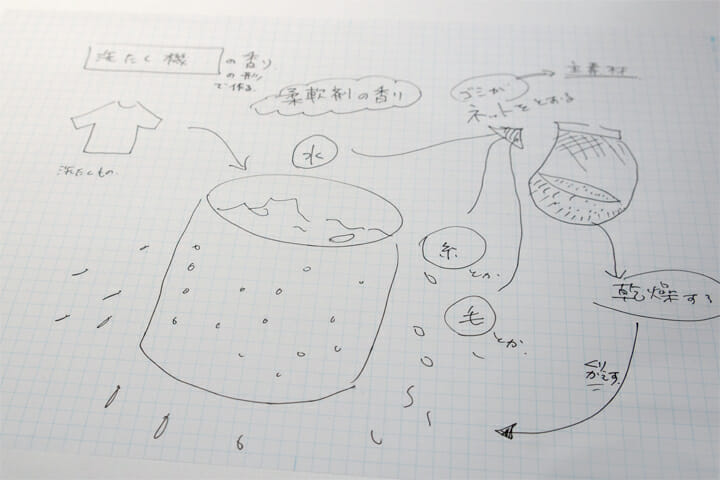 洗たく機 の香り
の形
で作る
柔軟剤の香り
ゴミが
ネットをとおる
主素材
洗たくもの
水
糸 とか
毛 とか
乾燥する
くり
かえす